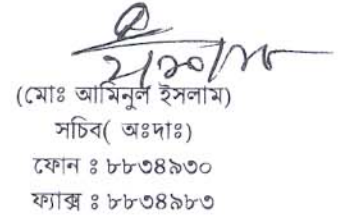 (মোঃ আমিনুল ইসলাম)
সচিব( অঃদাঃ)
ফোন ঃ ৮৮৩৪৯৩০
ফ্যাক্স ঃ ৮৮৩৪৯৮৩